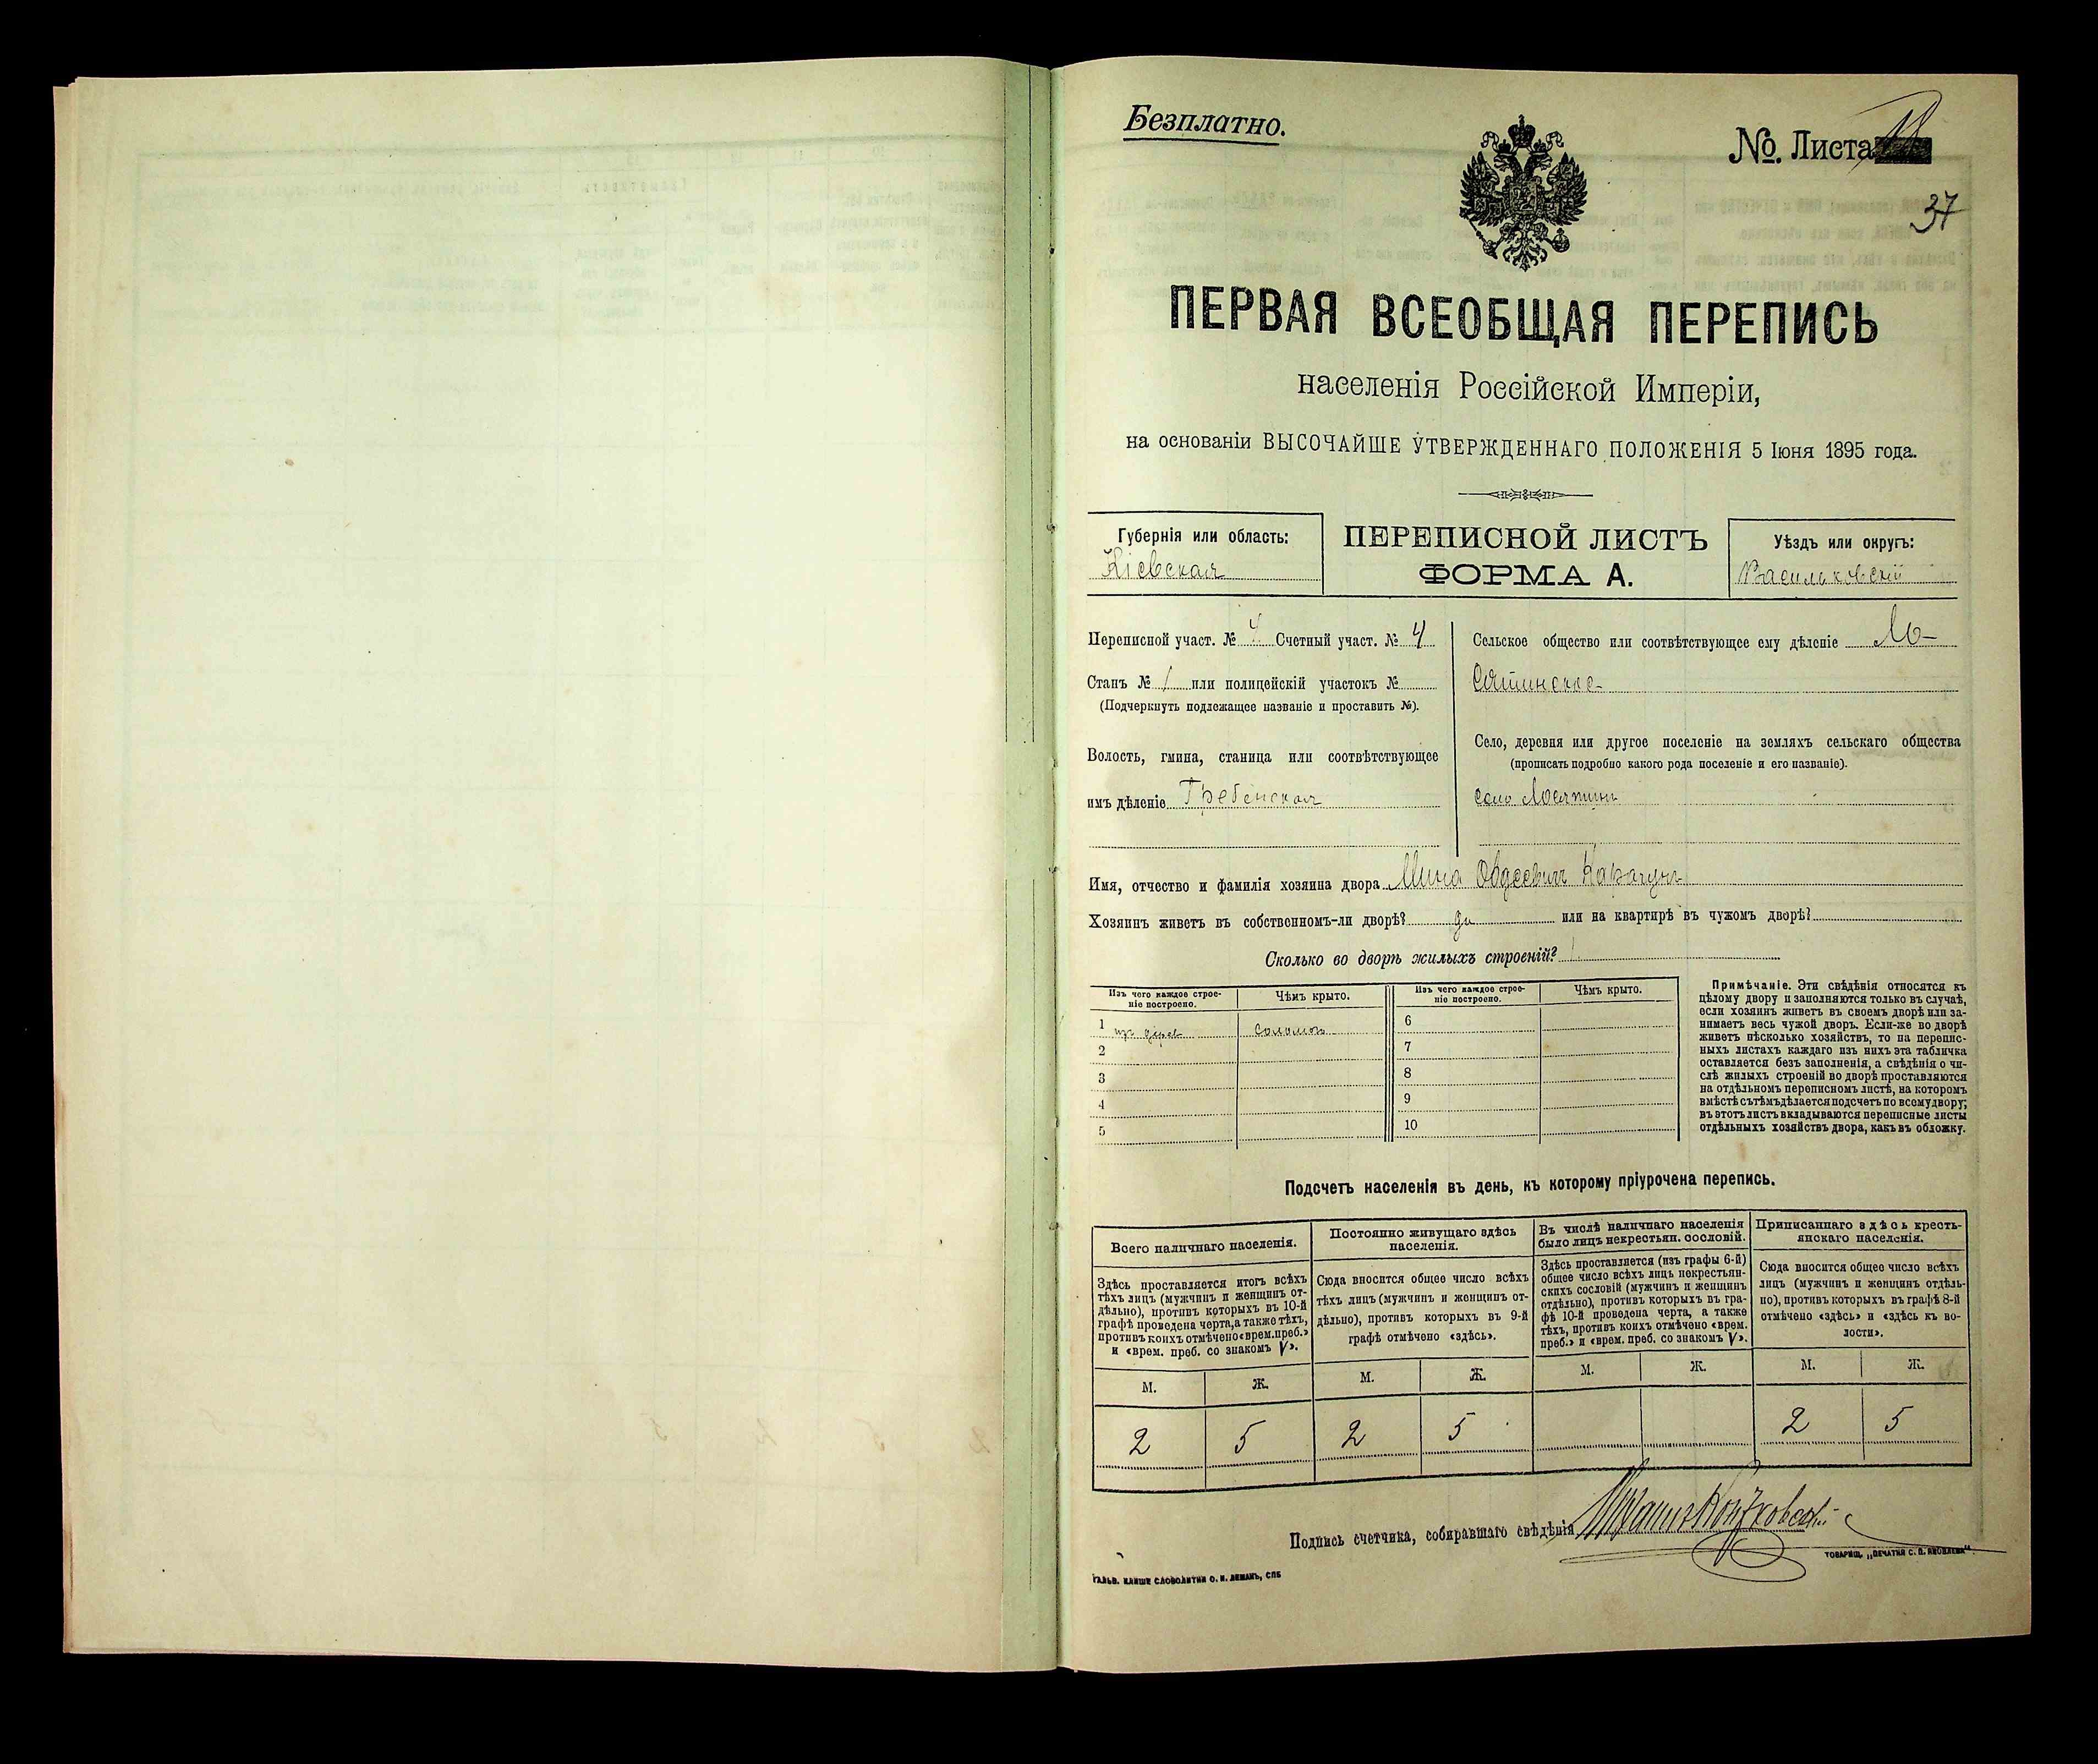 Безплатно.
№. Листа 18
37
ПЕРВАЯ ВСЕОБЩАЯ ПЕРЕПИСЬ
населенія Россійской Имперіи,
на основаніи ВЫСОЧАЙШЕ УТВЕРЖДЕННАГО ПОЛОЖЕНІЯ 5 Іюня 1895 года.
Губернія или область:
Кіевская
ПЕРЕПИСНОЙ ЛИСТЪ
ФОРМА А.
Уѣздъ или округъ:
Васильковскій
Переписной участ. № 4 Счетный участ. № 4
Станъ № 1 или полицейскій участокъ №
(Подчеркнуть подлежащее названіе и проставить №).
Волость, гмина, станица или соотвѣтствующее
имъ дѣленіе Гребенская
Сельское общество или соотвѣтствующее ему дѣленіе Ло-
сятинское
Село, деревня или другое поселеніе на земляхъ сельскаго общества
(прописать подробно какого рода поселеніе и его названіе).
село Лосятинъ
Имя, отчество и фамилія хозяина двора Мина Овдеевичъ Карагуш
Хозяинъ живетъ въ собственномъ-ли дворѣ? да или на квартирѣ въ чужомъ дворѣ?
Сколько во дворѣ жилыхъ строеній? 1
Изъ чего каждое строе-
ніе построено.
Чѣмъ крыто.
Изъ чего каждое строе-
ніе построено.
Чѣмъ крыто.
1 изъ дерев соломою
2
3
4
5
6
7
8
9
10
Примѣчаніе. Эти свѣдѣнія относятся къ
цѣлому двору и заполняются только въ случаѣ,
если хозяинъ живетъ въ своемъ дворѣ или за-
нимаетъ весь чужой дворъ. Если-же во дворѣ
живетъ нѣсколько хозяйствъ, то на перепис-
ныхъ листахъ каждаго изъ нихъ эта табличка
оставляется безъ заполненія, а свѣдѣнія о чи-
слѣ жилыхъ строеній во дворѣ проставляются
на отдѣльномъ переписномъ листѣ, на которомъ
вмѣстѣ съ тѣмъ дѣлается подсчетъ по всему двору;
въ этотъ листъ вкладываются переписные листы
отдѣльныхъ хозяйствъ двора, какъ въ обложку.
Подсчетъ населенія въ день, къ которому пріурочена перепись.
Всего наличнаго населенія.
Здѣсь проставляется итогъ всѣхъ
тѣхъ лицъ (мужчинъ и женщинъ от-
дѣльно), противъ которыхъ въ 10-й
графѣ проведена черта, а также тѣхъ,
противъ коихъ отмѣчено «врем. преб.»
и «врем. преб. со знакомъ V».
Постоянно живущаго здѣсь
населенія.
Сюда вносится общее число всѣхъ
тѣхъ лицъ (мужчинъ и женщинъ от-
дѣльно), противъ которыхъ въ 9-й
графѣ отмѣчено «здѣсь».
Въ числѣ наличнаго населенія
было лицъ некрестьян. сословій.
Здѣсь проставляется (изъ графы 6-й)
общее число всѣхъ лицъ некрестьян-
скихъ сословій (мужчинъ и женщинъ
отдѣльно), противъ которыхъ въ гра-
фѣ 10-й проведена черта, а также
тѣхъ, противъ коихъ отмѣчено «врем.
преб.» и «врем. преб. со знакомъ V».
Приписаннаго здѣсь кресть-
янскаго населенія.
Сюда вносится общее число всѣхъ
лицъ (мужчинъ и женщинъ отдѣль-
но), противъ которыхъ въ графѣ 8-й
отмѣчено «здѣсь» и «здѣсь къ во-
лости».
М. Ж. М. Ж. М. Ж. М. Ж.
2 5 2 5 2 5
Подпись счетчика, собиравшаго свѣдѣнія
ГАЛЬВ. КЛИШЕ СЛОВОЛИТНИ О. И. ЛЕМАНЪ, СПБ
ТОВАРИЩ. „ПЕЧАТНЯ С. П. ЯКОВЛЕВА"